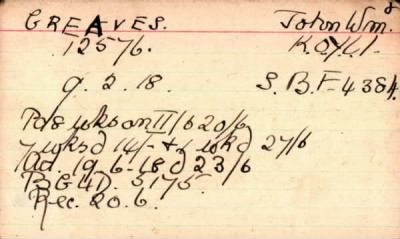 GREAVES. John Wm.
12576. K.O.Y.L.I.
9. 2. 18. S.B.F. 4384.
Pos wks on II/6 20/6
7 wks d 14/- + 1 wk d 27/6
Ad. 19.6.18 d 23/6
B64D. 5175.
Rec. 20.6.